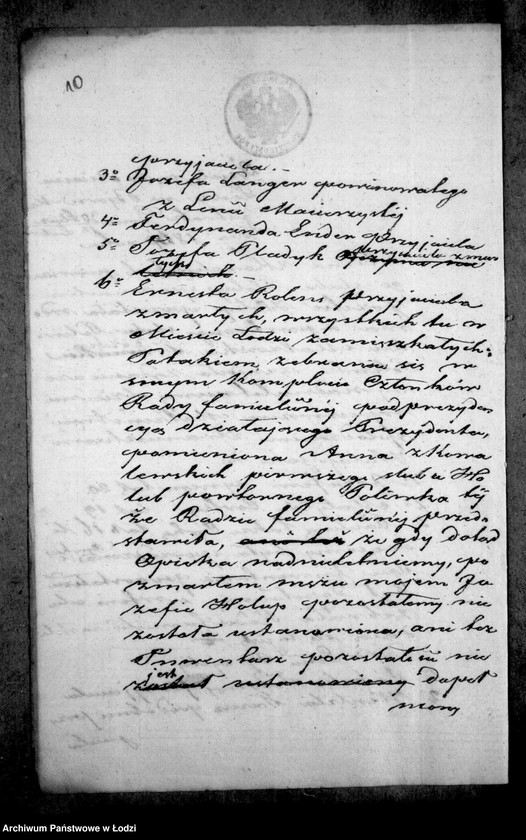 10
przyjaciela. –
3º Jozefa Langer powinowatego
z Linii Macierzystej
4º Ferdynanda Ender Przyjaciela
5º Jozefa Pladyk przyjaciela zmar
łych –
6º Ernesta Rolers przyjaciela
zmarłych, wszystkich tu w
Mieście Łodzi zamieszkałych.
Po takiem zebraniu się w
smym Komplecie Członków
Rady familiinéj pod prezyden
cyą działającego Prezydenta,
pomieniona Anna z Kowa
lewskich pierwszego ślubu Ho
lub powtornego Poliwka téj
że Radzie familiinéj przed
stawiła, że gdy dotąd
Opieka nad nieletniemy, po
zmarłem mężu mojem Jo
zefie Holup pozostałemy nie
została ustanowiona, ani też
Inwentarz pozostałości nie
jest dopeł
niony
Archiwum Państwowe w Łodzi